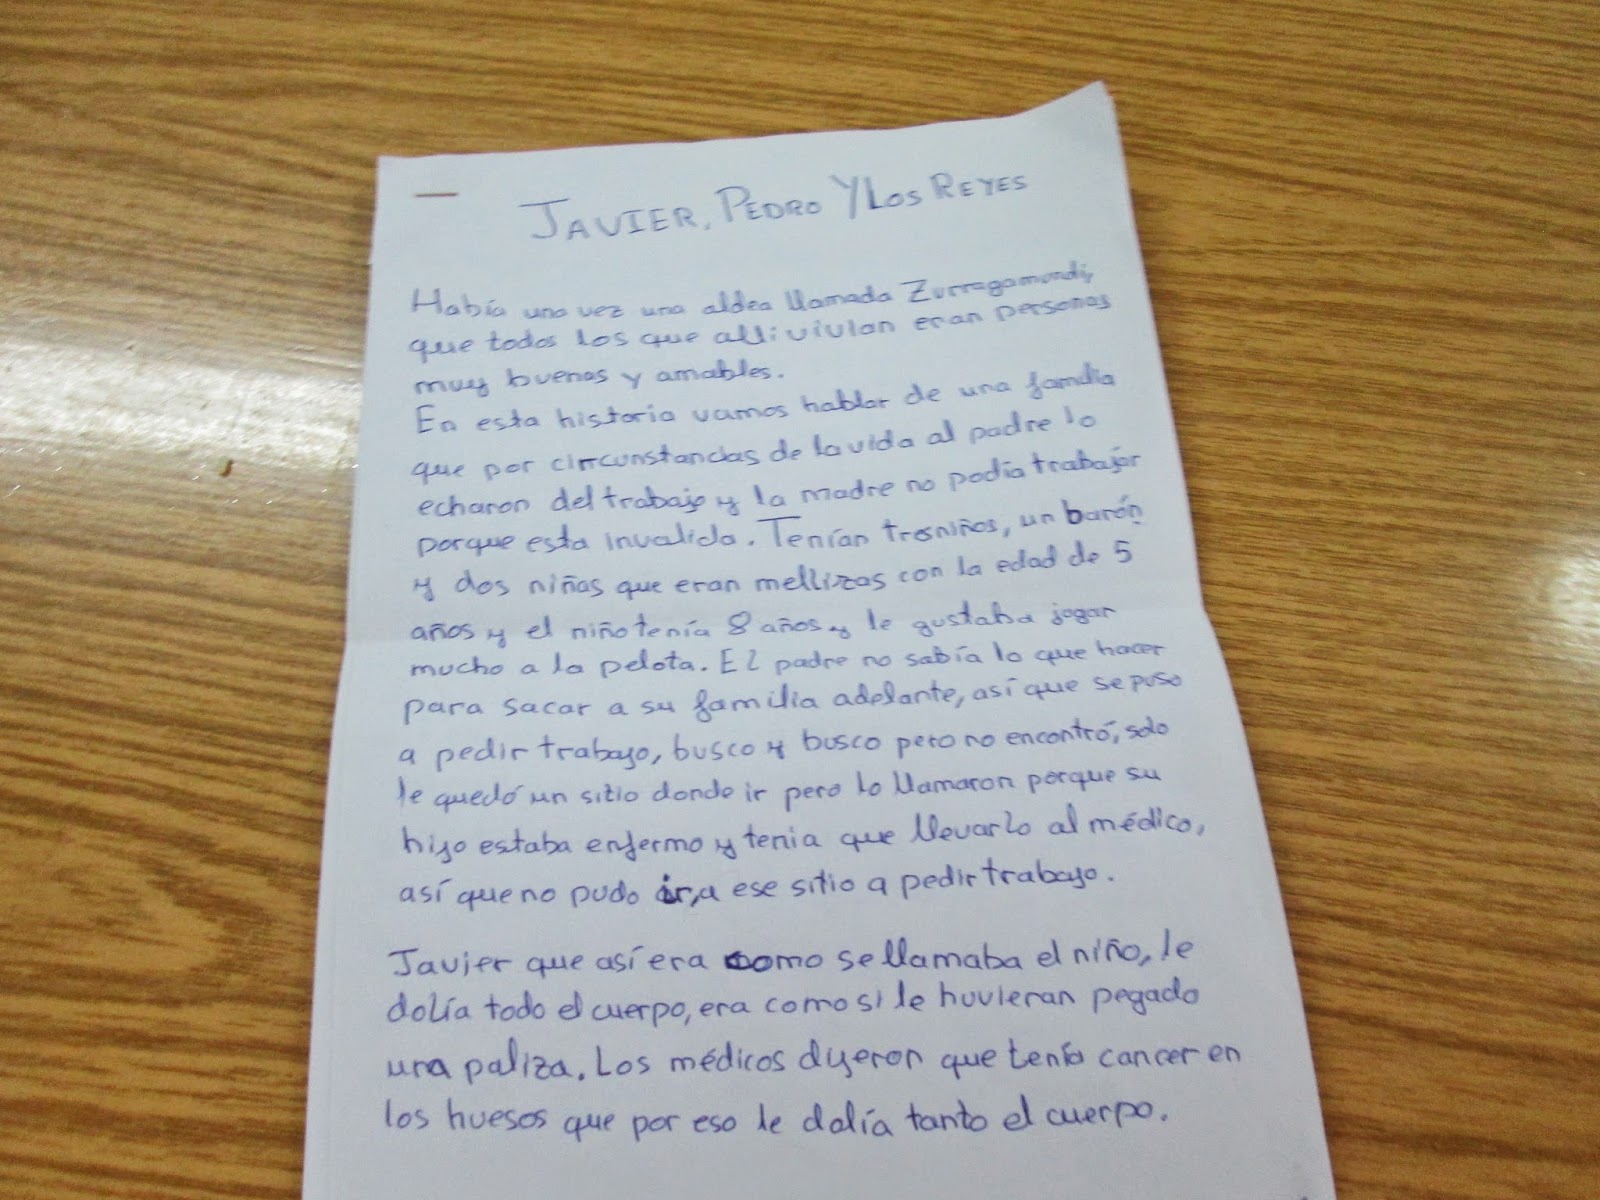 JAVIER, PEDRO Y LOS REYES
Había una vez una aldea llamada Zurragamundi,
que todos los que alli vivían eran personas
muy buenas y amables.
En esta historia vamos hablar de una familia
que por circunstancias de la vida al padre lo
echaron del trabajo y la madre no podía trabajar
porque esta invalida. Tenían tres niños, un barón
y dos niñas que eran mellizas con la edad de 5
años y el niño tenía 8 años y le gustaba jogar
mucho a la pelota. El padre no sabía lo que hacer
para sacar a su familia adelante, así que se puso
a pedir trabajo, busco y busco pero no encontró, solo
le quedó un sitio donde ir pero lo llamaron porque su
hijo estaba enfermo y tenia que llevarlo al médico,
así que no pudo ir, a ese sitio a pedir trabajo.
Javier que así era como se llamaba el niño, le
dolía todo el cuerpo, era como si le huvieran pegado
una paliza. Los médicos dijeron que tenía cancer en
los huesos que por eso le dolía tanto el cuerpo.